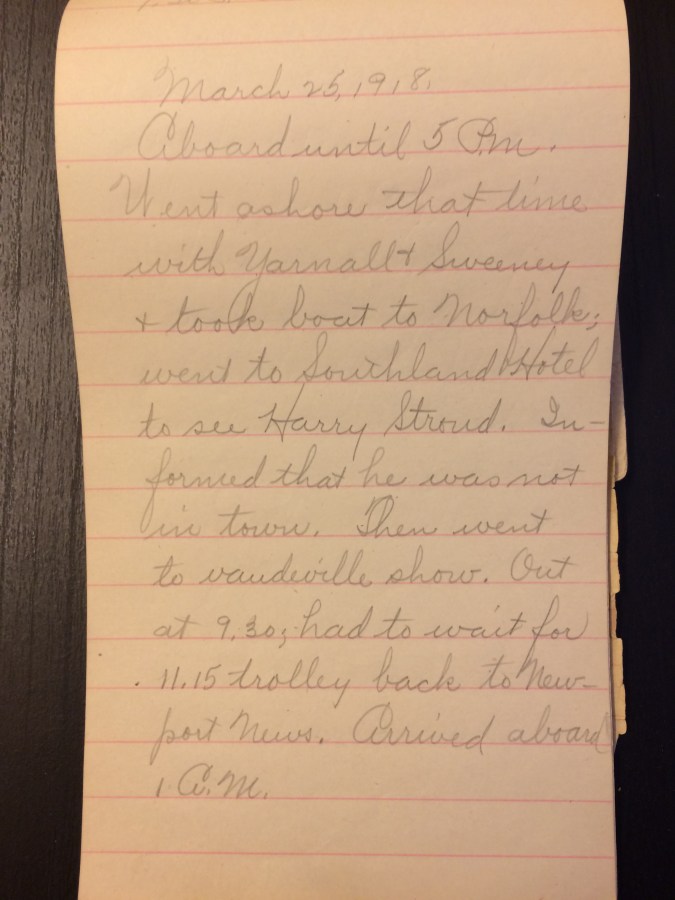 March 25, 1918.
Aboard until 5 P.m.
Went ashore that time
with Yarnall & Sweeney
& took boat to Norfolk;
went to Southland Hotel
to see Harry Stroud. In-
formed that he was not
in town. Then went
to vaudeville show. Out
at 9.30; had to wait for
11.15 trolley back to New-
port News. Arrived aboard
1 A.M.